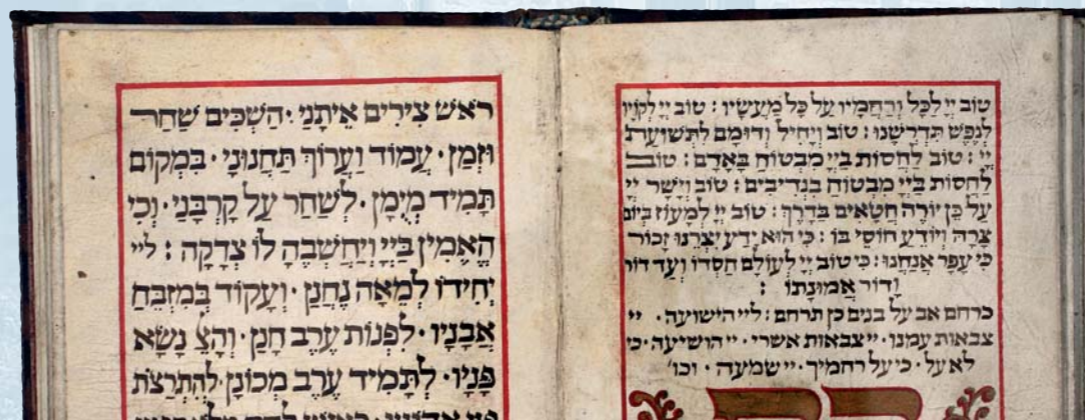 טוֹב יְיָ לַכֹּל וְרַחֲמָיו עַל כָּל מַעֲשָׂיו : טוֹב יְיָ לְקֹוָיו
לְנֶפֶשׁ תִּדְרְשֶׁנּוּ : טוֹב וְיָחִיל וְדוּמָם לִתְשׁוּעַת
יְיָ : טוֹב לַחֲסוֹת בַּיְיָ מִבְּטוֹחַ בָּאָדָם : טוֹב
לַחֲסוֹת בַּיְיָ מִבְּטוֹחַ בִּנְדִיבִים : טוֹב וְיָשָׁר יְיָ
עַל כֵּן יוֹרֶה חַטָּאִים בַּדָּרֶךְ : טוֹב יְיָ לְמָעוֹז בְּיוֹם
צָרָה וְיוֹדֵעַ חוֹסֵי בוֹ : כִּי הוּא יָדַע יִצְרֵנוּ זָכוּר
כִּי עָפָר אֲנָחְנוּ : כִּי טוֹב יְיָ לְעוֹלָם חַסְדּוֹ וְעַד דּוֹר
וָדוֹר אֱמוּנָתוֹ :
כרחם אב על בנים כן תרחם : ליי הישועה · יי
צבאות עמנו · יי צבאות אשרי · יי הושיעה · כי
לא על · כי על רחמיך · יי שמעה · וכו'
רֹאשׁ צִירִים אֵיתָנֵי · הַשְׁכִּים שַׁחַר
וּזְמַן · עֲמוֹד וַעֲרוֹךְ תַּחֲנוּנֵי · בִּמְקוֹם
תָּמִיד מְיֻמָּן · לְשַׁחַר עַל קָרְבָּנֵי · וְכִי
הֶאֱמִין בַּיְיָ וַיַּחְשְׁבֶהָ לּוֹ צְדָקָה : ליי
יְחִידוֹ לְמֵאָה נֶחֱנַן · וְעָקוֹד בְּמִזְבֵּחַ
אֲבָנָיו · לִפְנוֹת עֶרֶב חָנַן · וְהָצֵ נָשָׂא
פָּנָיו · לְתָמִיד עֶרֶב מְכוֹנָן · לְהִתְרַצּוֹת